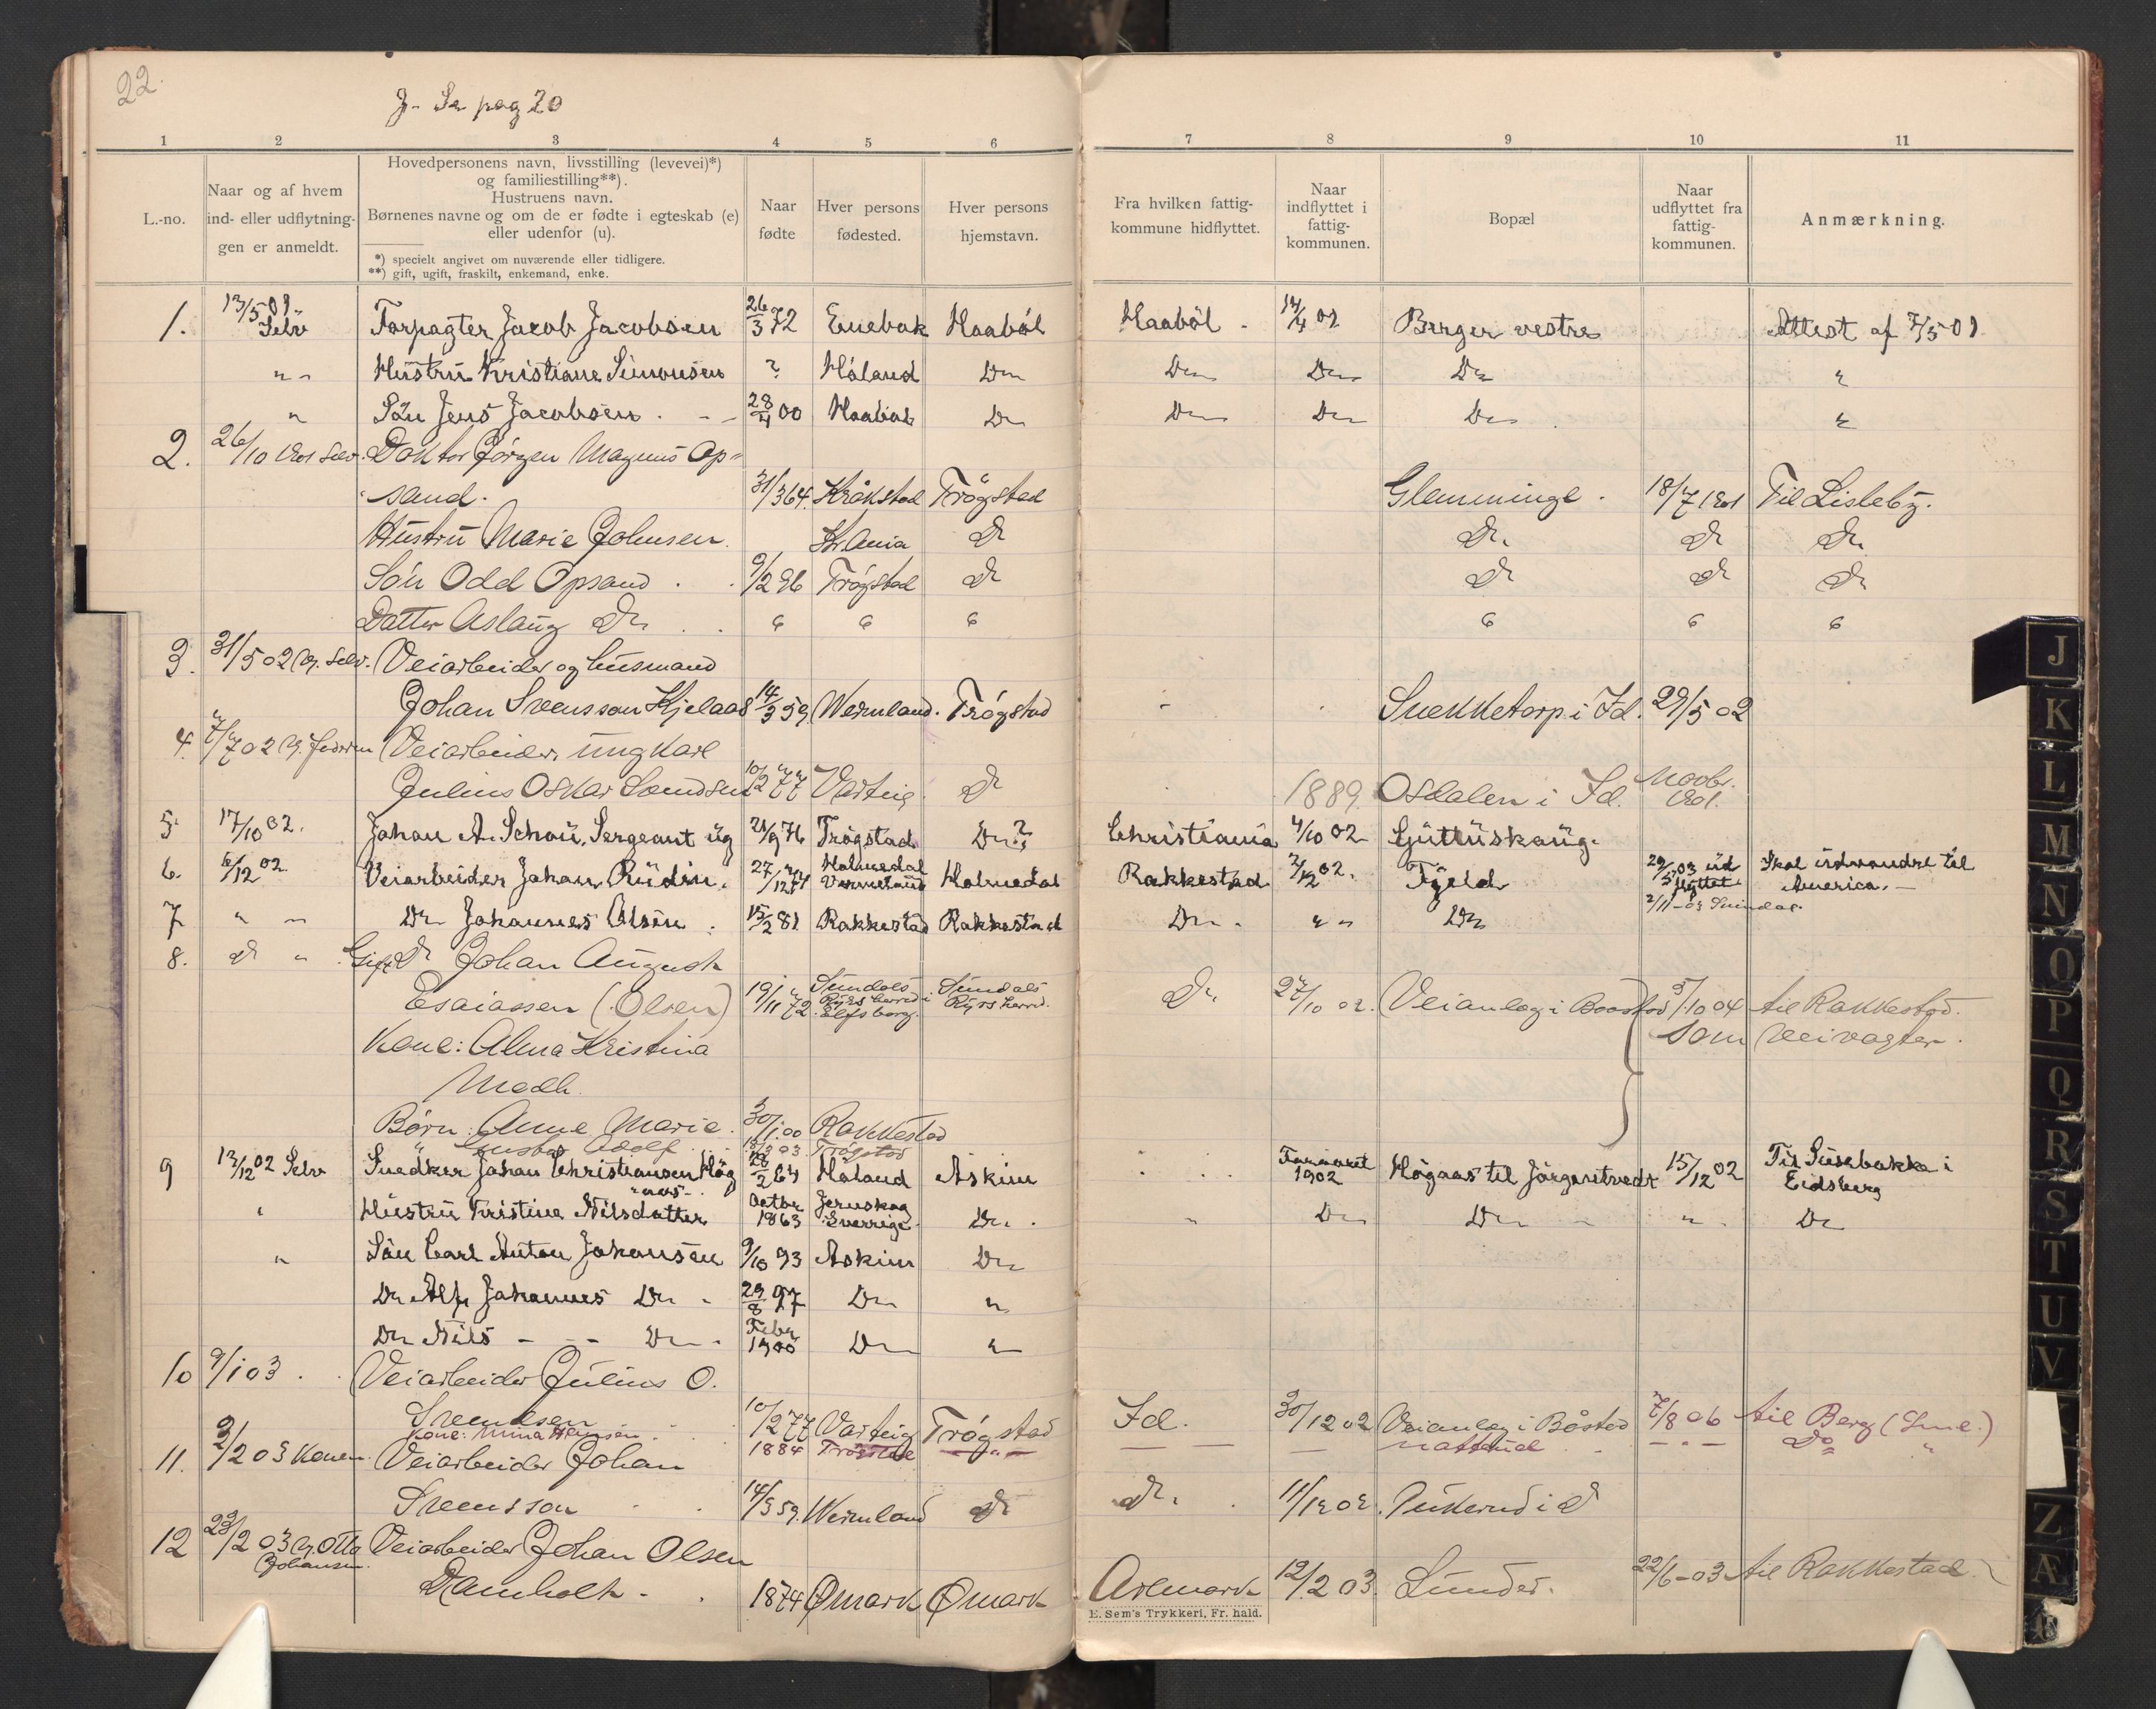 22.
J- Se pag 20
1 2 3 4 5 6 7 8 9 10 11
L.-no.
Naar og af hvem
ind- eller udflytnin-
gen er anmeldt.
Hovedpersonens navn, livsstilling (levevei)*)
og familiestilling**).
Hustruens navn.
Børnenes navne og om de er fødte i egteskab (e)
eller udenfor (u).
*) specielt angivet om nuværende eller tidligere.
**) gift, ugift, fraskilt, enkemand, enke.
Naar
fødte
Hver persons
fødested.
Hver persons
hjemstavn.
Fra hvilken fattig-
kommune hidflyttet.
Naar
indflyttet i
fattig-
kommunen.
Bopæl
Naar
udflyttet fra
fattig-
kommunen.
Anmærkning.
1. 13/5 01 Selv Forpagter Jacob Jacobsen 26/3 72 Enebak Haabøl Haaböl - 14/4 01 Berger vestre Attest af 7/5 01
" - Hustru Kristiane Simonsen ? Höland Do Do Do Do "
" Sön Jens Jacobsen - - 28/4 00 Haaböl Do Do Do Do "
2. 26/10 1901 Selv. Doktor Jörgen Magnus Op=
sand. 31/3 64. Kråkstad Trögstad Glemminge. 18/7 1901 Til Lisleby.
Hustru Marie Johnsen. Kr.ania Do Do Do Do
Sön Odd Opsand . . 9/2 96 Trögstad Do Do Do Do
Datter Aslaug Do . . " " " " " "
3. 31/5 02 Selv. Veiarbeider og husmand
Johan Svensson Kjelaas 14/3 59. Wermland. Trögstad Snekketorp i Id. 29/5 02
4. 7/7 02 Veiarbeider, ungkarl
Julius Oskar 10/2 77 Varteig Do 1889. Osdalen i Id. Novbr. 1901.
5. 17/10 02. Johan A. Schou, Sergeant ug 21/9 76 Trögstad Do? Christiania 4/10 02 Guttuskaug.
6. 6/12 02 Veiarbeider Johan Rudin. 27/12 71 Holmedal Vermeland Holmedal Rakkestad 2/12 02. Fjeld 29/5 03 ud flyttet Skal udvandre til America. -
7 " - Do Johannes Olsen . 15/2 81 Rakkestad Rakkestad Do - " " Do 2/11-03
8. Do " Gift Do Johan August
Esaiassen (Olsen) 19/11 72. Sundals Ryrs herred i Elfsborg. Sundals Ryrs herred. Do 27/10 02. Veianlæg i Baastad 5/10 04 til Rakkestad.
Kone: Alma Kristina som veivagter.
Börn: Anne Marie. 30/1 00 Rakkestad
" Gustav Adolf Trögstad
9 13/12 02 Selv Snedker Johan Christiansen Hög 28/2 64 Höland Askim Foraaret 1902 Högaas til Jörgentvedt 15/12 02 Til Susebakke i Eidsberg
" aas -
" Hustru Kristine Nilsdatter Octbr 1863 Sverrige Do . " Do Do - " Do
" Sön Carl Anton Johansen 9/10 93 Askim Do
Do Alf Johannes Do - 29/8 97 Do "
Do Nils - - Do - Febr 1900 Do "
10 9/1 03 . . Veiarbeider Julius O.
Svendsen 10/2 77 Varteig Trögstad Id. 30/12 02 Veianlæg i Båstad 7/8 06 til Berg (Sml.)
Kone: Mina Hansen . . 1884 Trögstad - " - Do "
11. 2/2 03 Konen. Veiarbeider Johan
Svensson 14/3 59. Wermland Do Do . 11/12 02. i Do
12 23/2 03 Otto Johansen. Veiarbeider Johan Olsen
Damholt - . 1874 Ømark Ømark Aremark 12/2 03. Sunder. 22/6-03 til Rakkestad.
E. Sem's Trykkeri, Fr. hald.
J
K
L
M
N
O
P
Q
R
S
T
U
V
Z
Æ